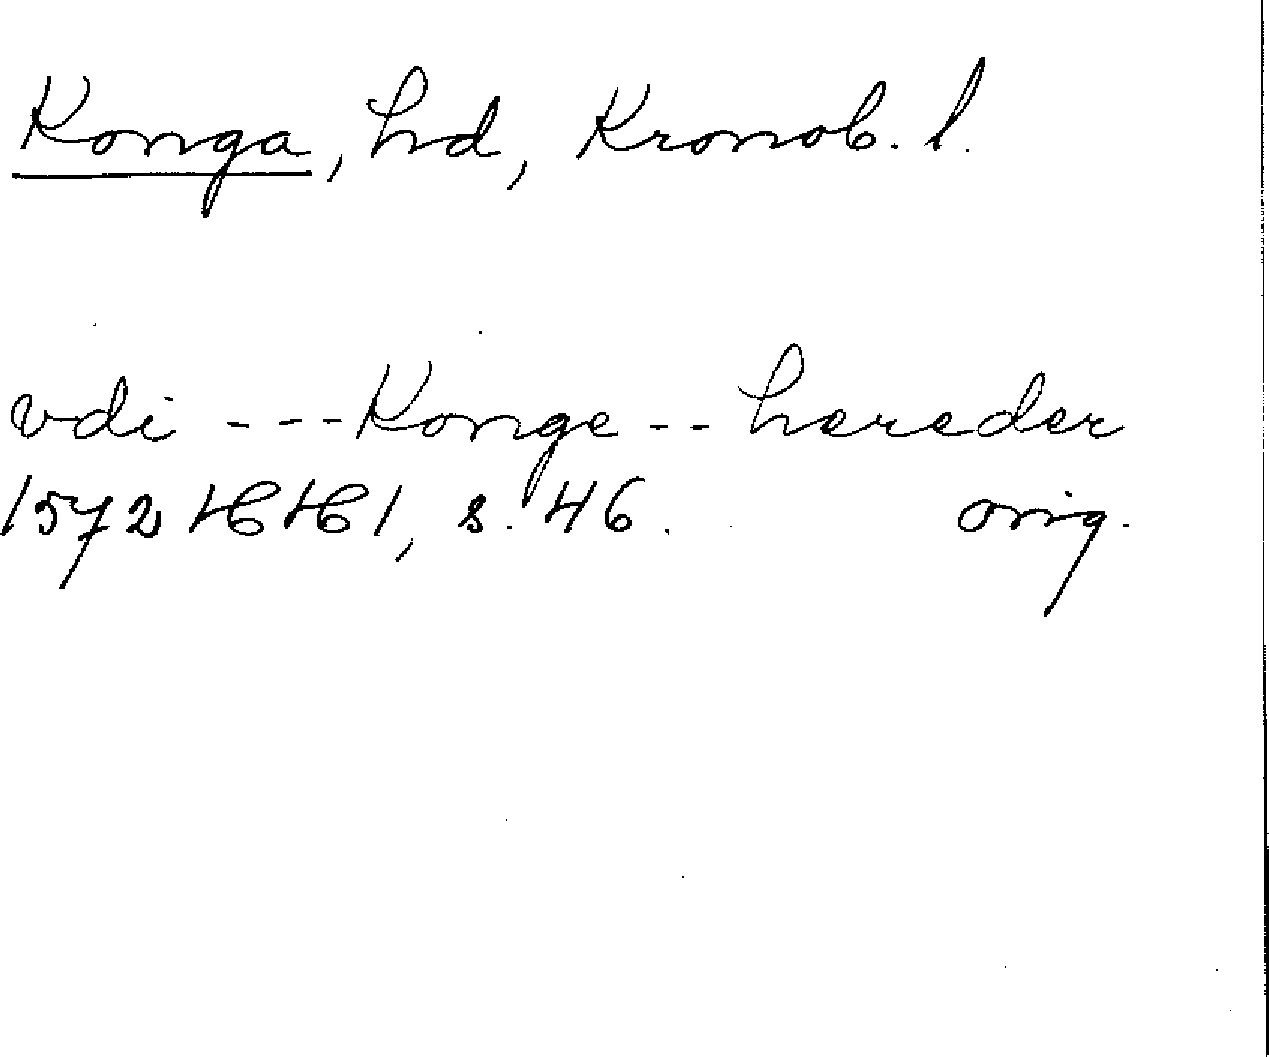 Konga, hd, Kronob. l.
vdi - - - Konge - - hereder
1572 HH 1, s. 46. orig.